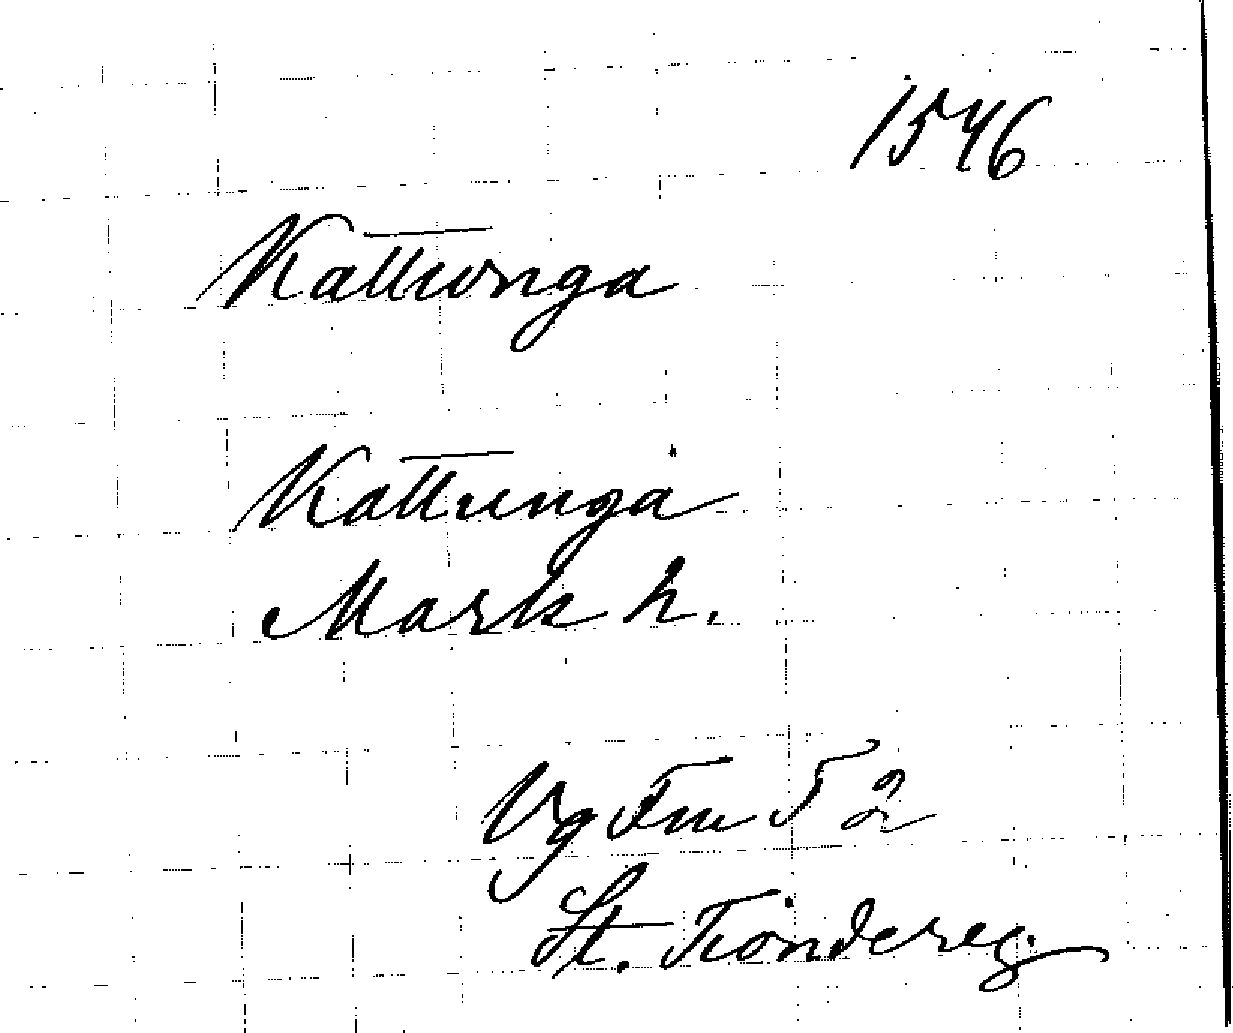 1546
Kattunga
Kattunga
Mark h.
Vg Fm 52
St. Tiondereg.